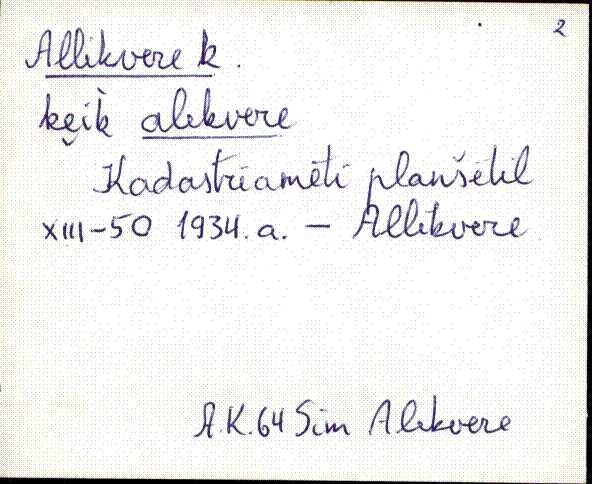 2
Allikvere k.
kęik̀ alekvere
Kadastriameti planšetil
XIII-50 1934. a. – Allikvere
A.K. 64 Sim Alekvere